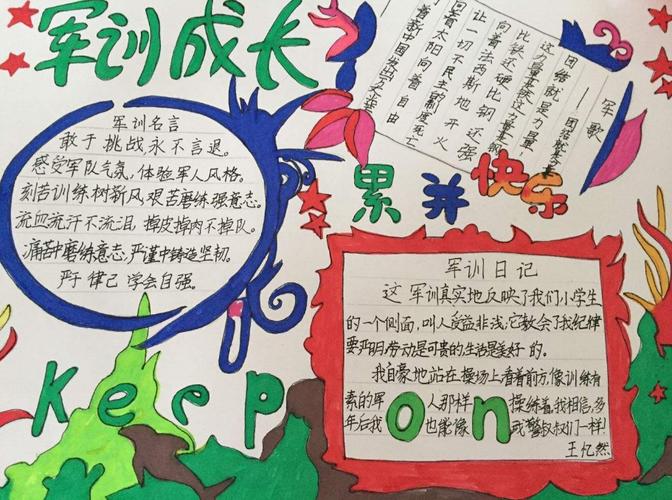 军训成长
军训名言
敢于挑战永不言退。
感受军队气氛,体验军人风格。
刻苦训练树新风艰苦磨练强意志。
流血流汗不流泪,掉皮掉肉不掉队。
痛苦中磨练意志,严谨中铸造坚韧。
严于律己学会自强。
军歌
团结就是力量
这力量是铁这力量是钢
比铁还硬比钢还强
向着法西斯地开火
让一切不民主的制度死亡
向着太阳向着自由
向着新中国发出
累并快乐
军训日记
这军训真实地反映了我们小学生
的一个侧面,叫人受益非浅,它教会了我纪律
要严明,劳动是可贵的生活是美好的。
我自豪地站在操场上看着前方,像训练有
素的军人那样操练着,我相信,多
年后我也能像武警叔叔们一样!
王亿然
Keep on